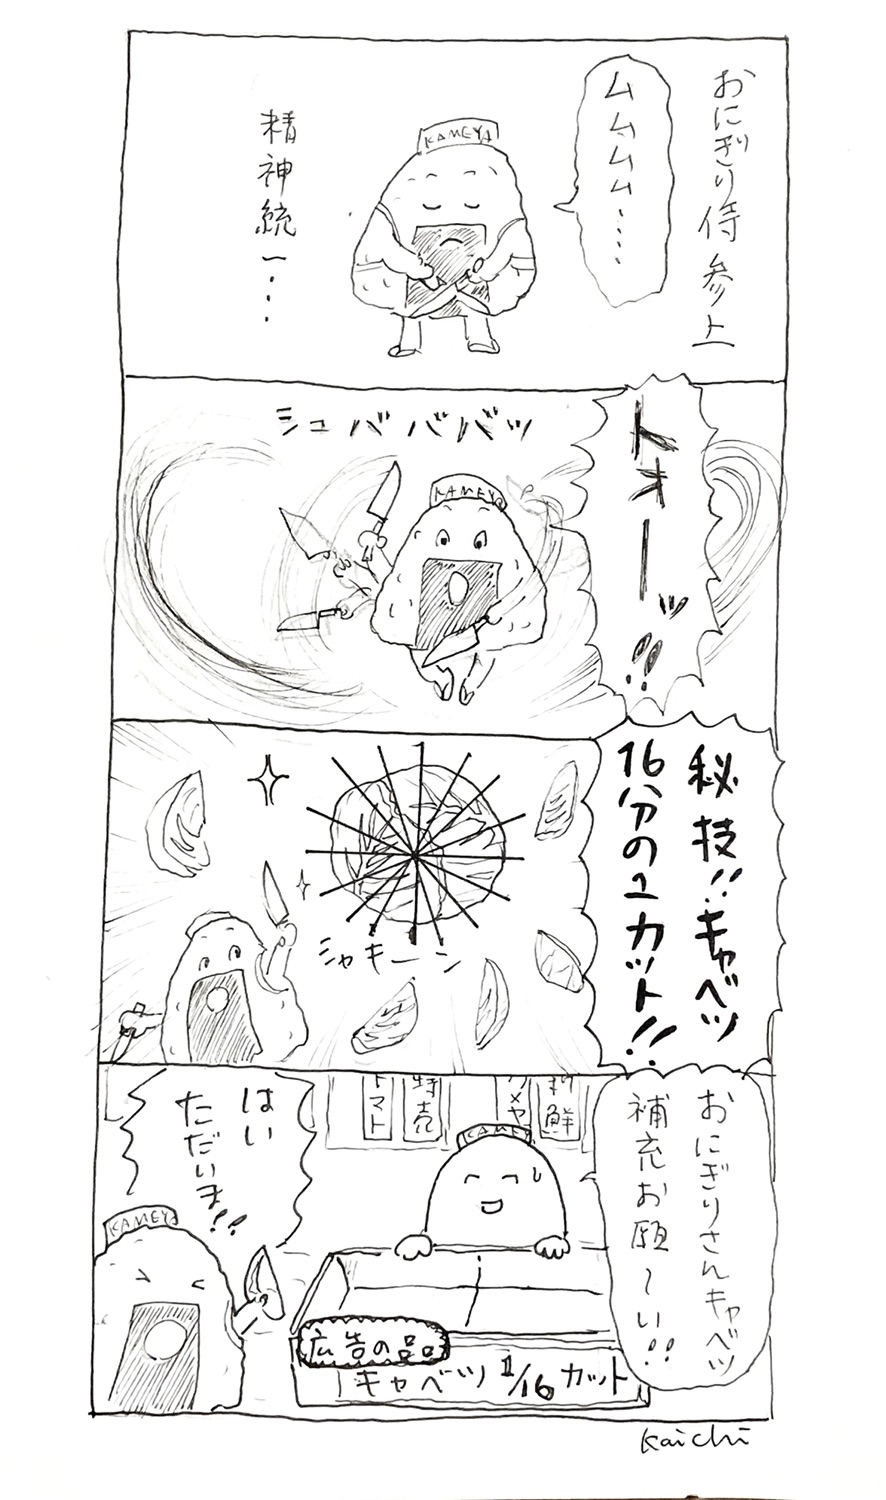 おにぎり侍参上
ムムムム……
KAMEYA
精神統一…
トオーッ!!
シュババババッ
KAMEYA
秘技!!キャベツ
16分の1カット!!
シャキーン
おにぎりさんキャベツ
補充お願〜い!!
新鮮
カメヤ
特売
トマト
KAMEY
はい
ただいま!!
KAMEYA
広告の品
キャベツ 1/16 カット
Kaichi